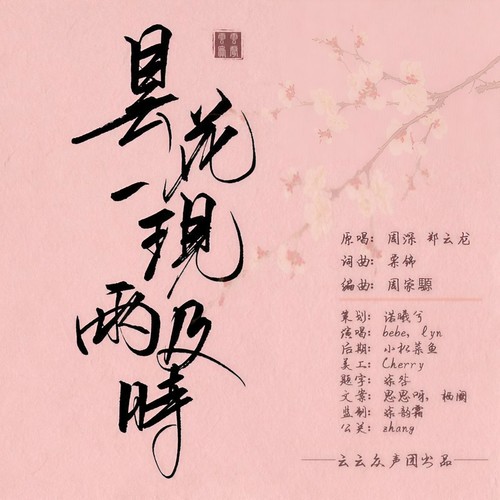 昙花
一現
雨及時
原唱: 周深 郑云龙
词曲: 栗锦
编曲: 周家驄
策划: 诺曦兮
演唱: bebe, lyn
后期: 小松菜鱼
美工: Cherry
题字:
文案: 思思呀, 栖阁
监制: 韵霜
公关: zhang
云云众声团出品